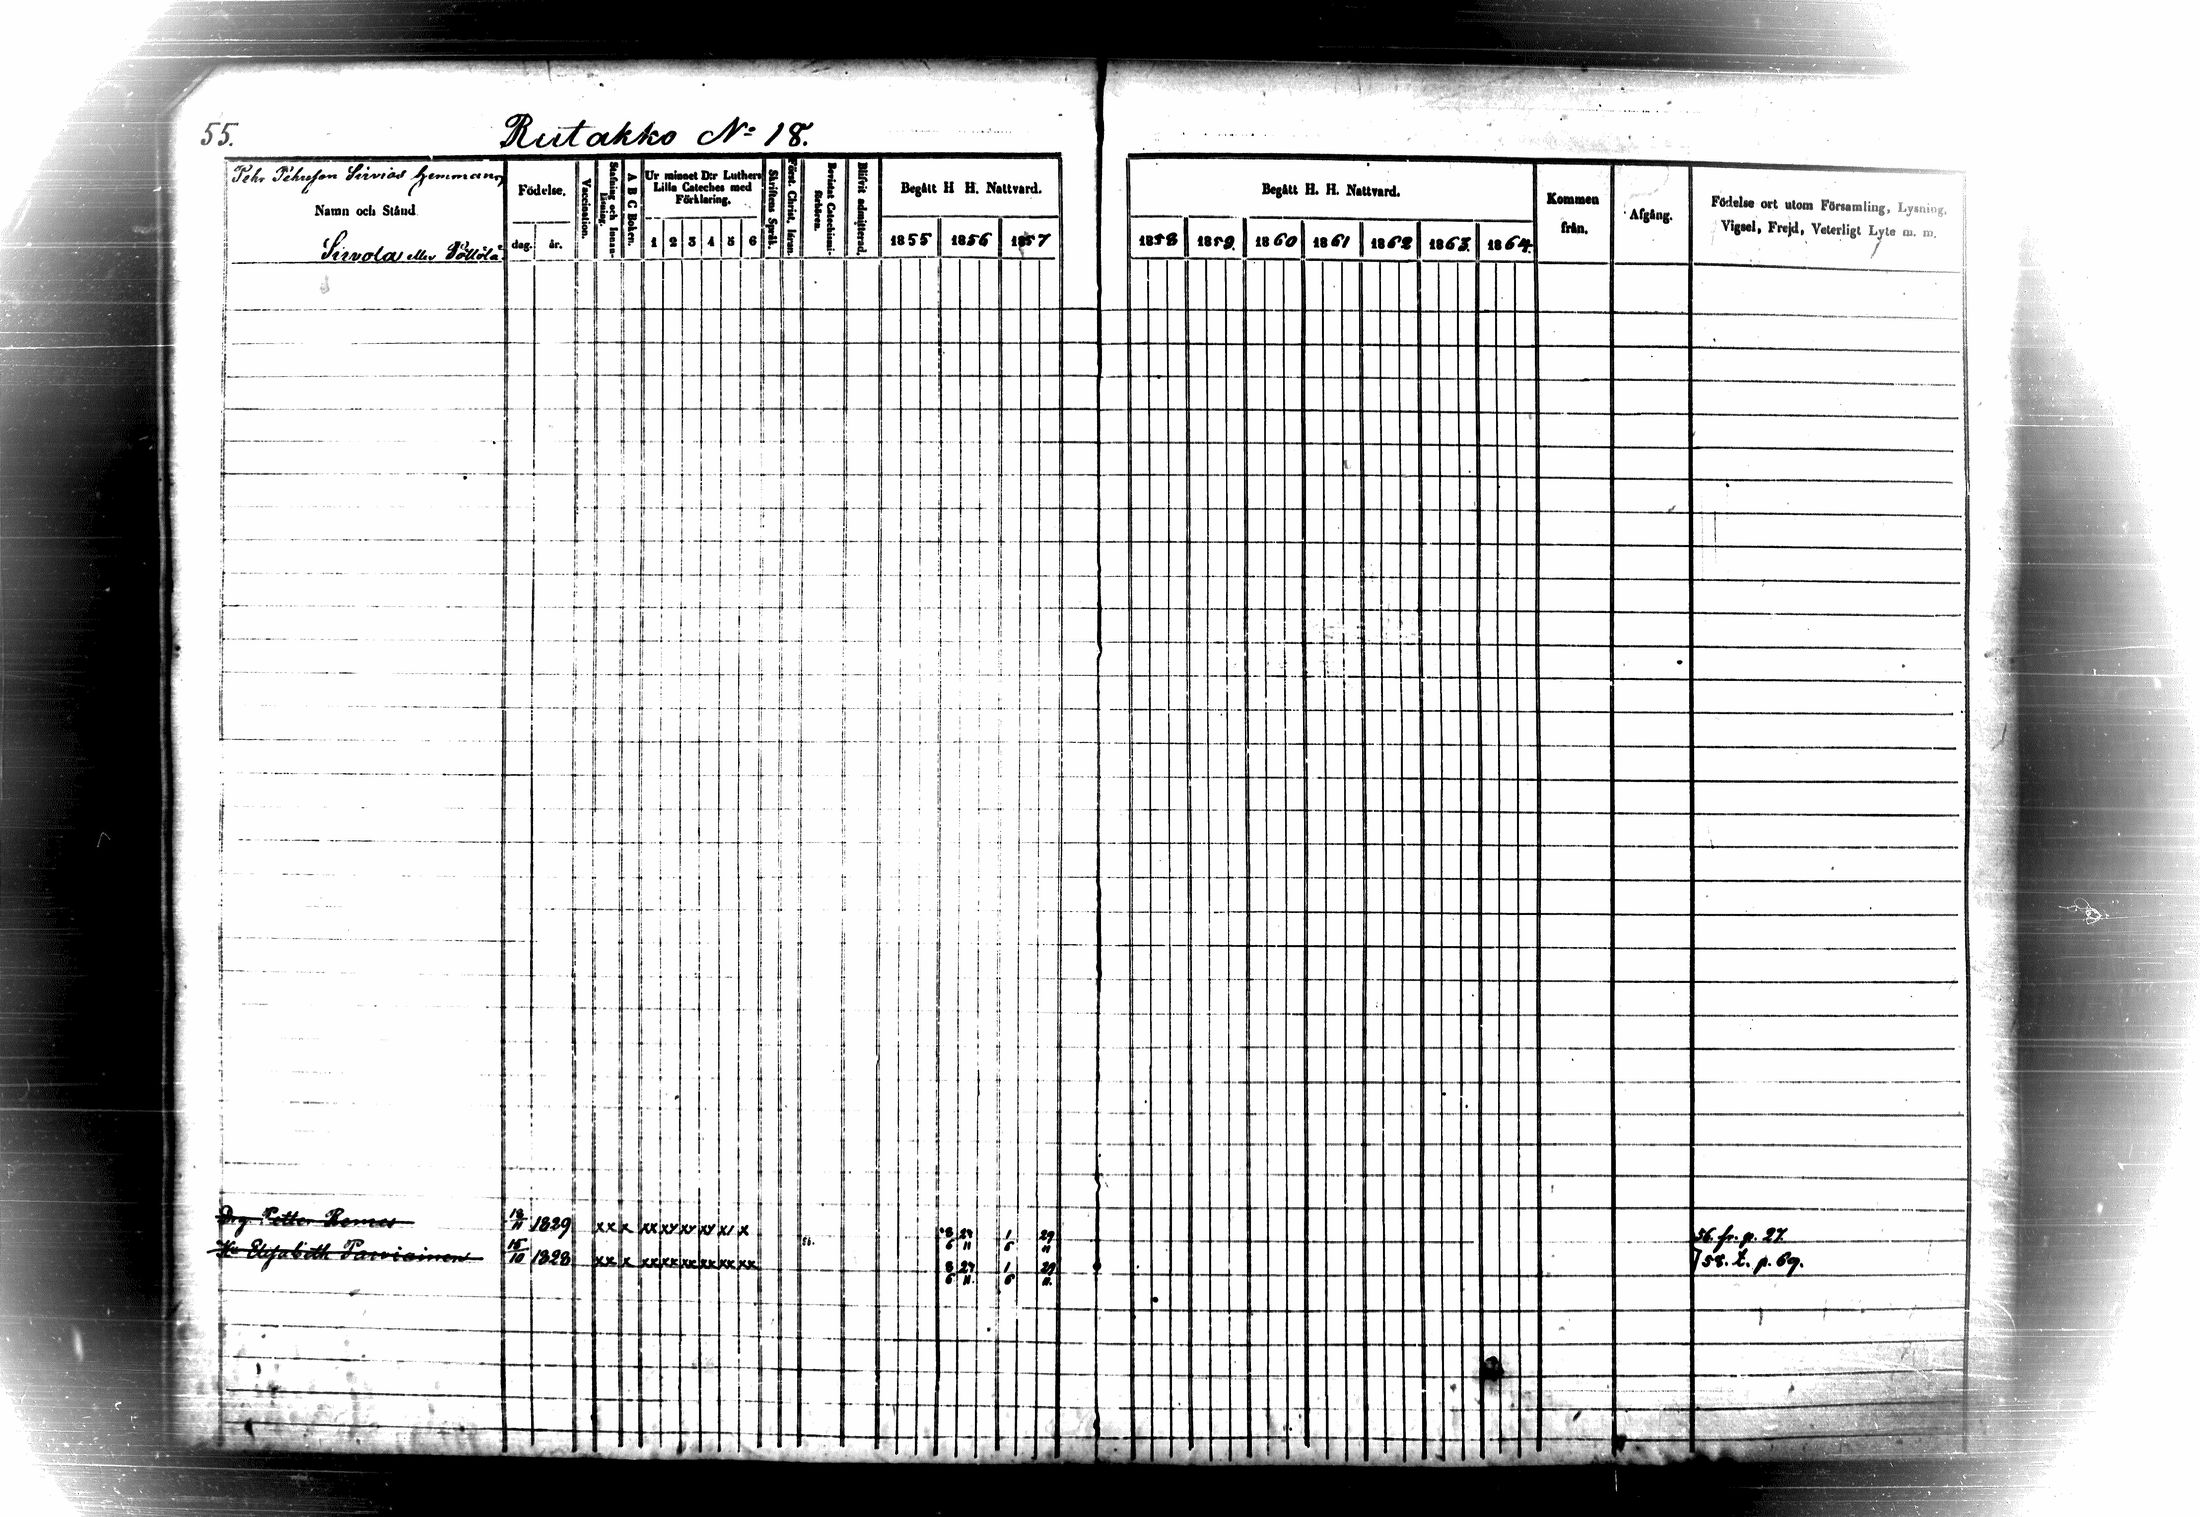 55.
Rutakko No 18.
Pehr Pehrsson Sirviös hemman,
Namn och Stånd
Sirvola eller Pöllölä
Födelse.
dag. år.
Vaccination.
Stafning och Innan-
läsning.
A B C Boken.
Ur minnet D:r Luthers
Lilla Cateches med
Förklaring.
1 2 3 4 5 6
Skriftens Språk.
Först. Christ. läran.
Bevistat Catechismi-
förhören.
Blifvit admitterad.
Begått H H. Nattvard.
1855 1856 1857
Begått H. H. Nattvard.
1858 1859 1860 1861 1862 1863 1864.
Kommen
från.
Afgång.
Födelse ort utom Församling, Lysning,
Vigsel, Frejd, Veterligt Lyte m. m.
Drg Petter Remes 18/11 1829 xx x xx xy xy xy x1 x 56. 8/6 24/11 1/6 29/11 56. fr. p. 27.
Hu Elisabeth Parviainen 15/10 1828 xx x xx xx xx xx xx xx 8/6 24/11 1/6 29/11 58. t. p. 69.